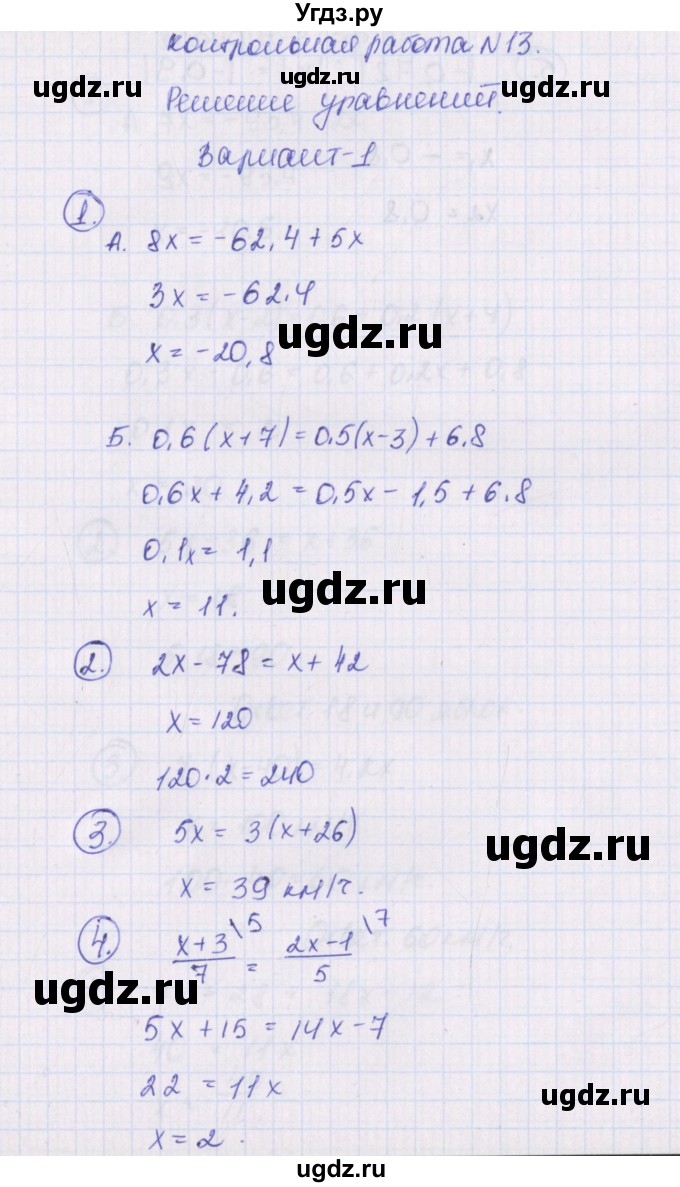 Угдз.ру
контрольная работа N13.
ugdz.ru ugdz.ru ugdz.ru
Решение уравнений.
Вариант-1
1.
А. 8x = -62,4 + 5x
3x = -62.4
ugdz.ru
x = -20,8
Б. 0,6(x+7) = 0.5(x-3) + 6.8
0,6x + 4,2 = 0,5x - 1,5 + 6.8
0,1x = 1,1
ugdz.ru
x = 11.
2. 2x - 78 = x + 42
x = 120
120·2 = 240
3. 5x = 3(x+26)
ugdz.ru
x = 39 км/ч.
4. x+3\5 / 7 = 2x-1\7 / 5
ugdz.ru
5x + 15 = 14x - 7
22 = 11x
ugdz.ru
x = 2.
ugdz.ru